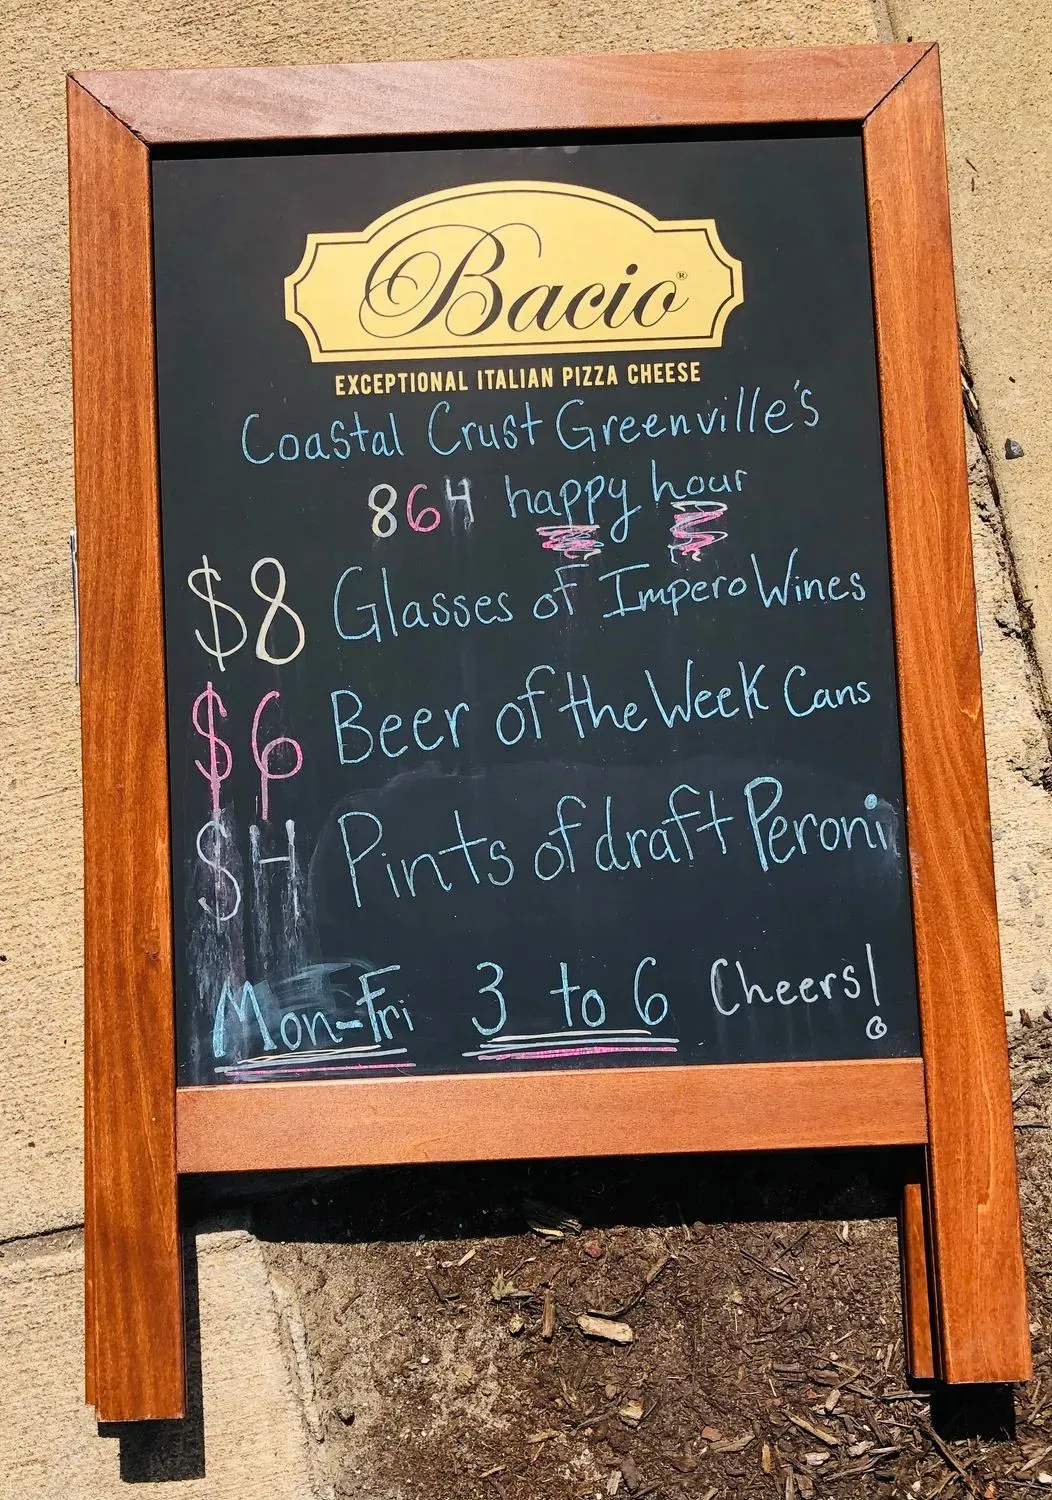 Bacio®
EXCEPTIONAL ITALIAN PIZZA CHEESE
Coastal Crust Greenville's
864 happy hour
$8 Glasses of Impero Wines
$6 Beer of the Week Cans
$4 Pints of draft Peroni
Mon-Fri 3 to 6 Cheers!